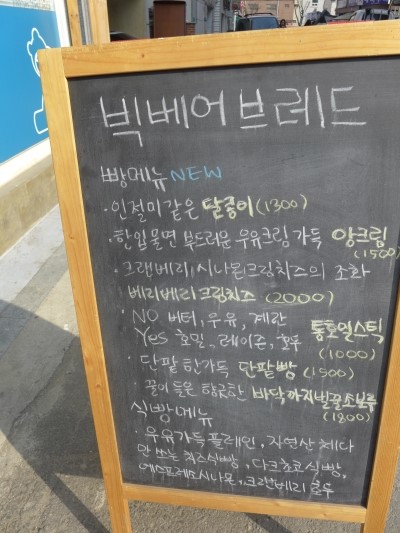 빅베어브레드
빵메뉴 NEW
·인절미같은 달콩이(1300)
·한입물면 부드러운 우유크림가득 앙크림
(1500)
·크랜베리,시나몬크림치즈의 조화
베리베리크림치즈 (2000)
·NO 버터,우유,계란
Yes 호밀,레이즌,호두 통호밀스틱
(1000)
·단팥한가득 단팥빵(1500)
·꿀이 들은 향긋한 바닥까지벌꿀소보루
(1800)
식빵메뉴
·우유가득플레인,자연산체다
만 쓰는 치즈식빵,다크초코식빵,
에스프레소시나몬,크랜베리호두